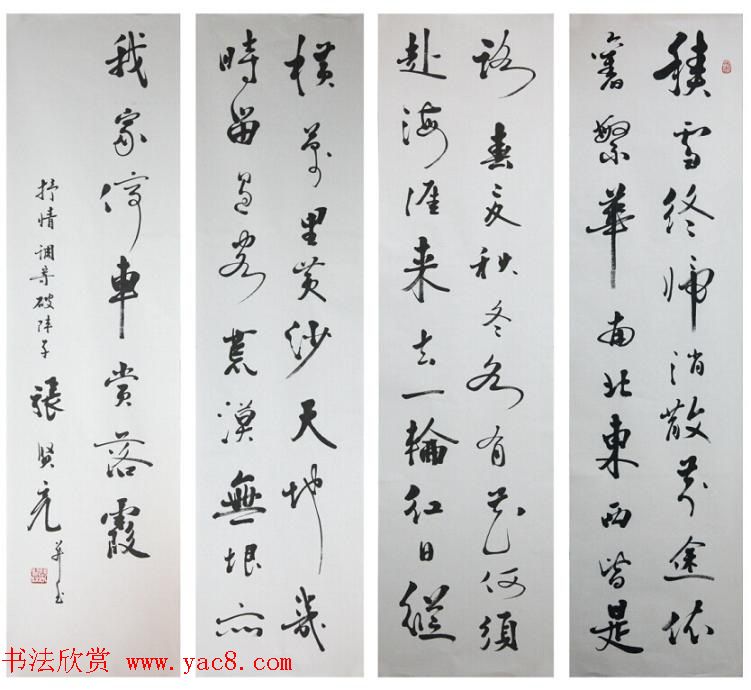 積雪終歸消散前途依
舊繁華南北東西皆是
路春夏秋冬各有花何須
赴海涯来去一輪紅日縱
橫萬里黃沙天地幾
時留過客荒漠無垠亦
我家停車賞落霞
抒情調寄破陣子 張賢亮并書
书法欣赏 www.yac8.com